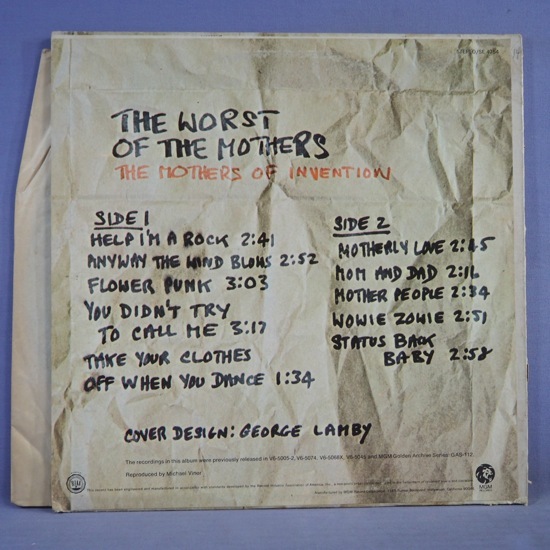 THE WORST
OF THE MOTHERS
THE MOTHERS OF INVENTION
SIDE 1
HELP I'M A ROCK 2:41
ANYWAY THE WIND BLOWS 2:52
FLOWER PUNK 3:03
YOU DIDN'T TRY
TO CALL ME 3:17
TAKE YOUR CLOTHES
OFF WHEN YOU DANCE 1:34
SIDE 2
MOTHERLY LOVE 2:45
MOM AND DAD 2:16
MOTHER PEOPLE 2:34
WOWIE ZOWIE 2:51
STATUS BACK
BABY 2:58
COVER DESIGN: GEORGE LAMBY
The recordings in this album were previously released in V6-5005-2, V6-5074, V6-5068X, and MGM Golden Archive Series GAS-112
Reproduced by Michael
MGM